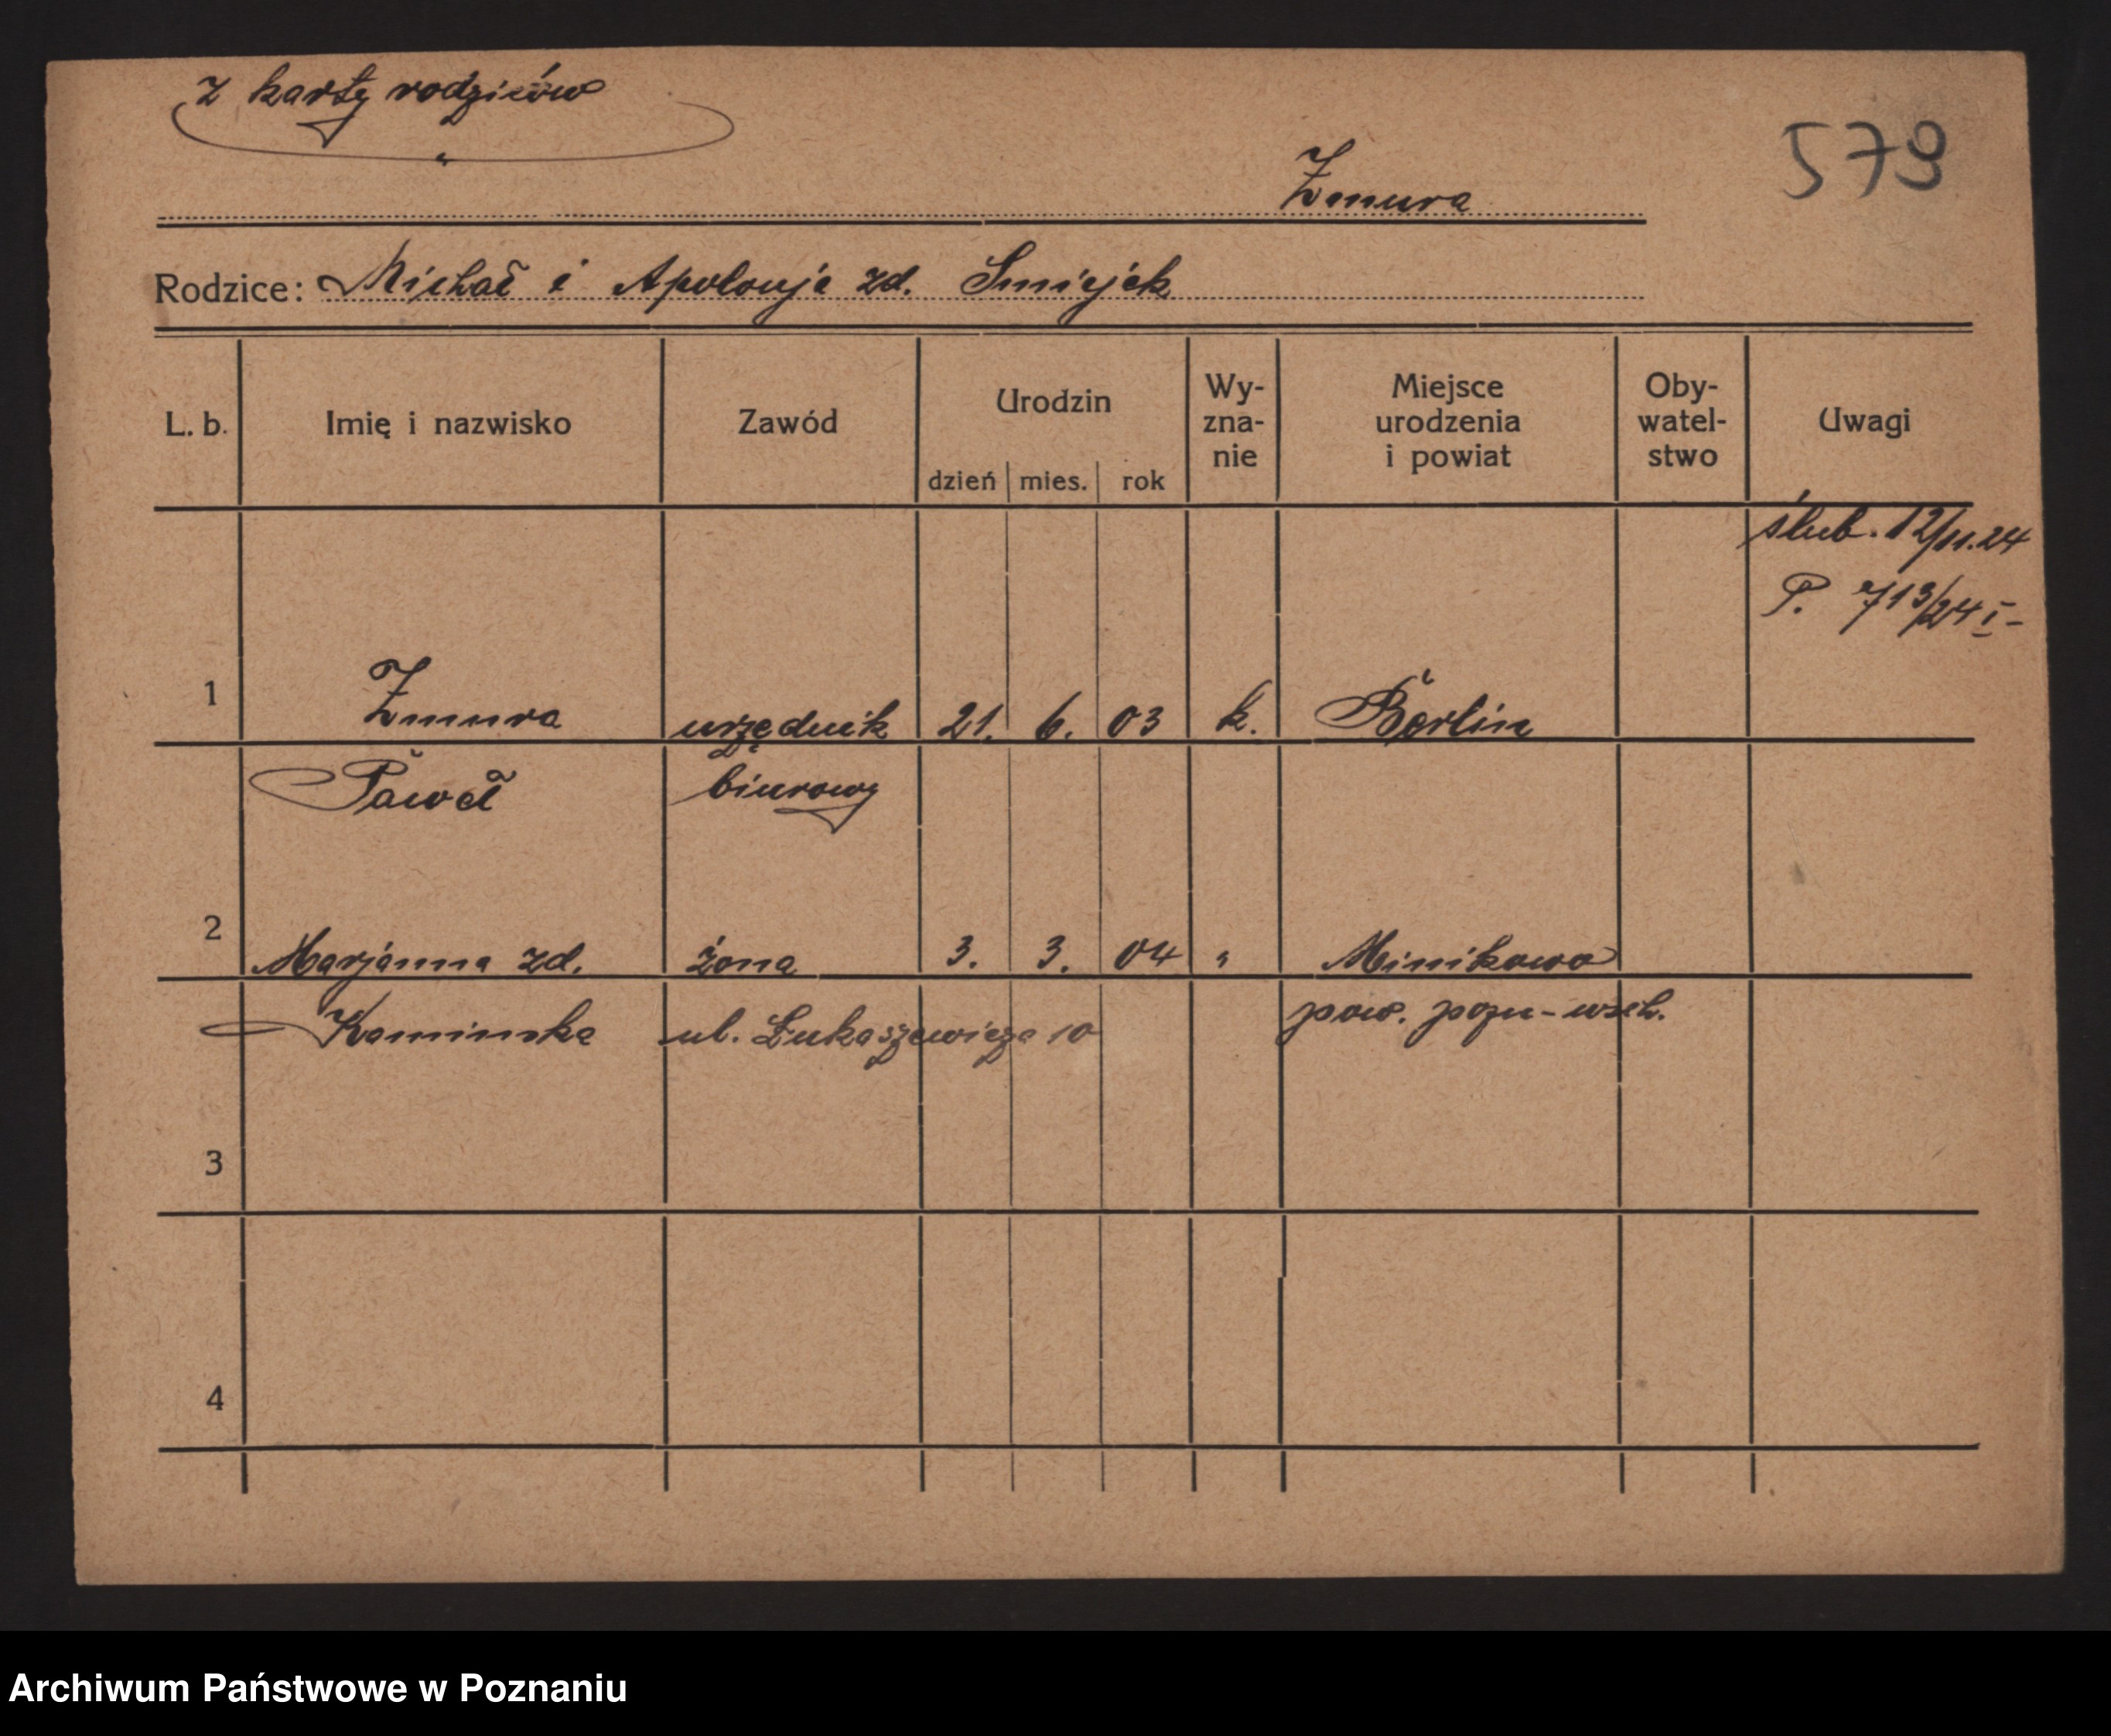 z karty rodziców
"
579
Zmura
Rodzice: Michał i Apolonja zd. Smiejek
L. b. Imię i nazwisko Zawód Urodzin Wy- Miejsce Oby- Uwagi
zna- urodzenia watel-
nie i powiat stwo
dzień mies. rok
ślub. 12/11.24
P. 713/24 I-
1 Zmura urzędnik 21. 6. 03 k. Berlin
Paweł biurowy
2 Marjanna zd. żona 3. 3. 04 " Minikowo
Kaminska ul. Łukaszewicza 10 pow. pozn-wsch.
3
4
Archiwum Państwowe w Poznaniu